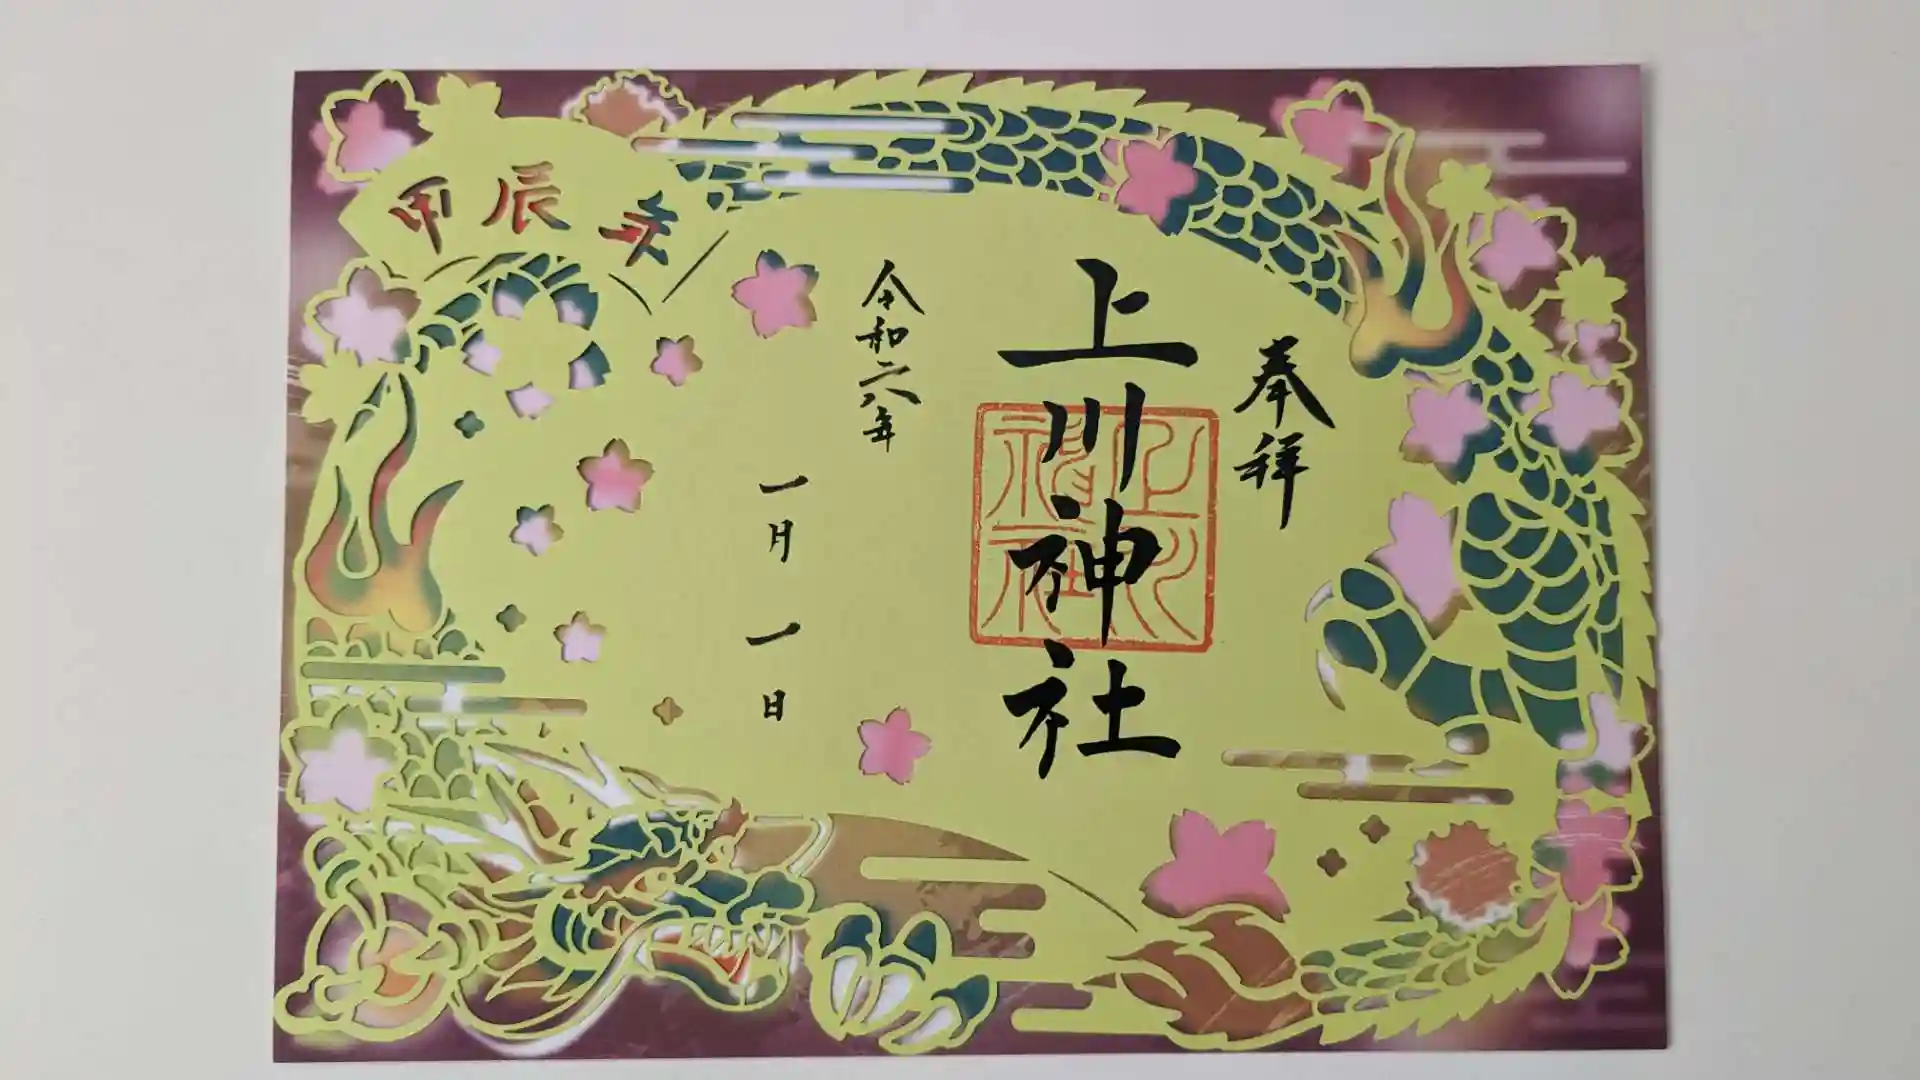 奉拝
上川神社
上川
神社
令和六年
一月一日
甲辰年